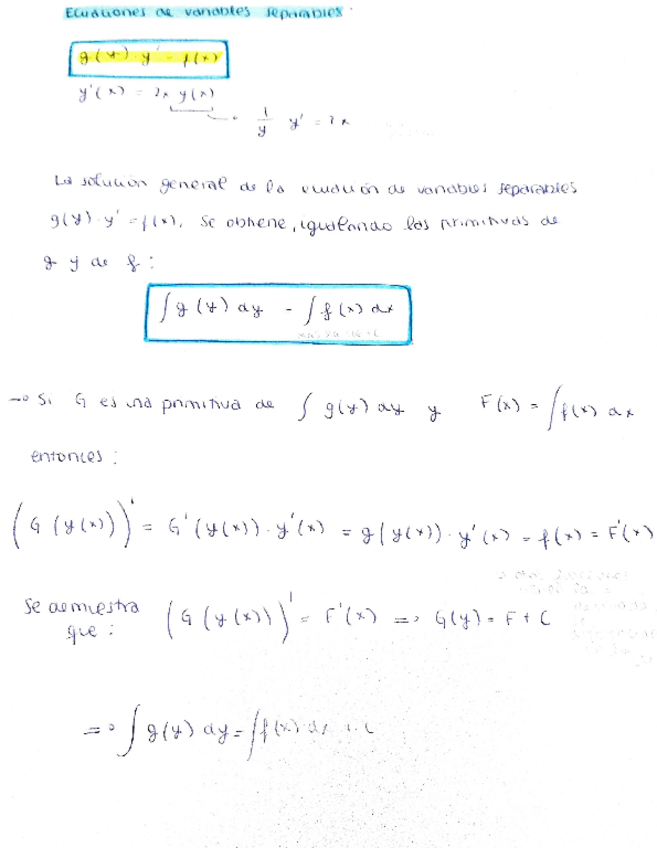 Ecuaciones de variables separables.
g(y)·y' = f(x)
y'(x) = 2x y(x)
1/y y' = 2x
La solución general de la ecuación de variables separables
g(y)·y' = f(x), se obtiene, igualando las primitivas de
g y de f:
∫g(y) dy = ∫f(x) dx
→ Si G es una primitiva de ∫g(y) dy y F(x) = ∫f(x) dx
entonces:
(G(y(x)))' = G'(y(x))·y'(x) = g(y(x))·y'(x) = f(x) = F'(x)
Se demuestra que: (G(y(x)))' = F'(x) => G(y) = F + C
=> ∫g(y) dy = ∫f(x) dx + C